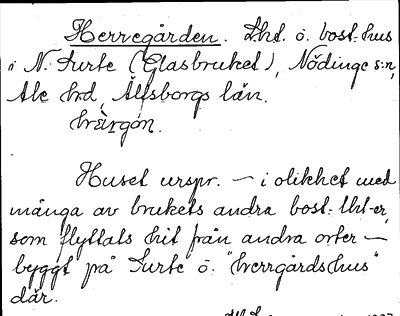 Herregården. Lht. o. bost. hus
i N. Surte (Glasbruket), Nödinge s:n,
Ale hd, Älvsborgs län.
Huset urspr. – i olikhet med
många av brukets andra bost. lht-er,
som flyttats hit från andra orter –
byggt på Surte o. "herrgårdshus"
där.